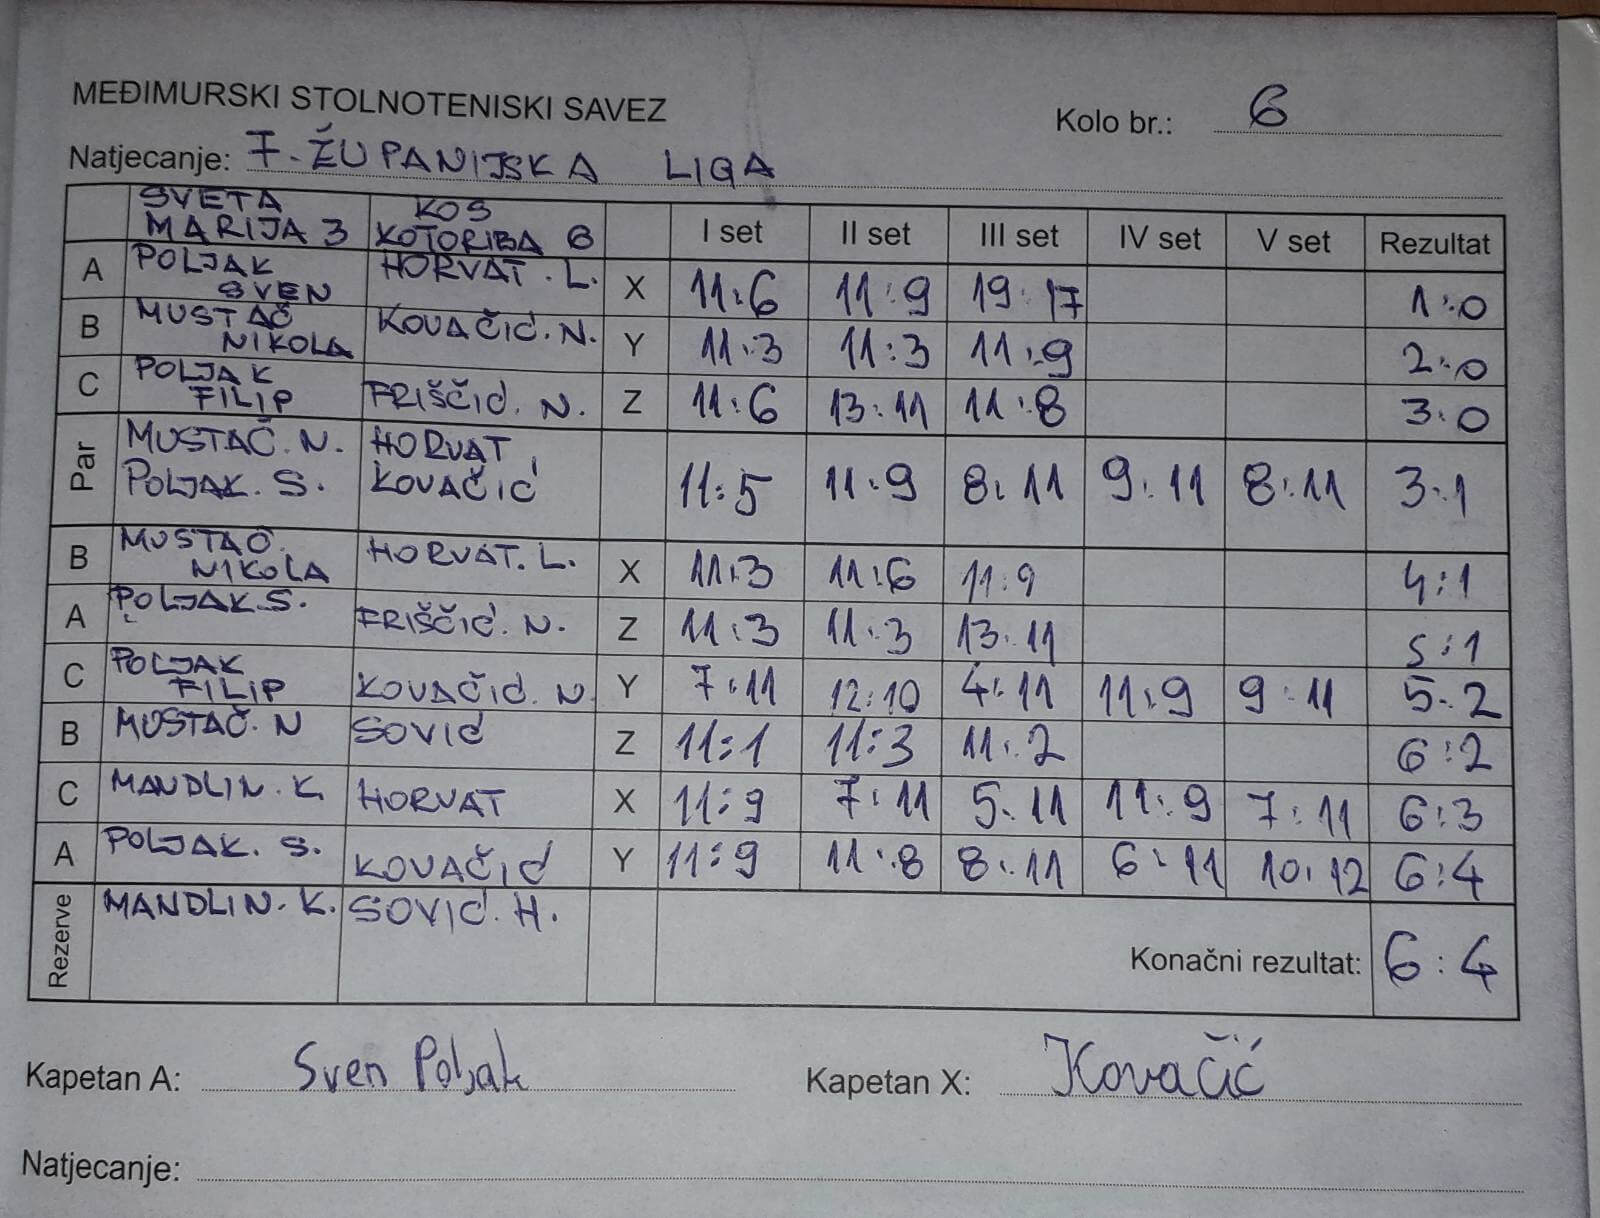 MEĐIMURSKI STOLNOTENISKI SAVEZ
Kolo br.: 6
Natjecanje: 7. ŽUPANIJSKA LIGA
SVETA MARIJA 3 KOS KOTORIBA 6 I set II set III set IV set V set Rezultat
A POLJAK SVEN HORVAT. L. X 11:6 11:9 19:17 1:0
B MUSTAČ NIKOLA KOVAČIĆ. N. Y 11:3 11:3 11:9 2:0
C POLJAK FILIP FRIŠČIĆ. N. Z 11:6 13:11 11:8 3:0
Par MUSTAČ. N. POLJAK. S. HORVAT KOVAČIĆ 11:5 11:9 8:11 9:11 8:11 3:1
B MUSTAČ. NIKOLA HORVAT. L. X 11:3 11:6 11:9 4:1
A POLJAK.S. FRIŠČIĆ. N. Z 11:3 11:3 13:11 5:1
C POLJAK FILIP KOVAČIĆ. N Y 7:11 12:10 4:11 11:9 9:11 5:2
B MUSTAČ. N SOVIĆ Z 11:1 11:3 11:2 6:2
C MANDLIN. K. HORVAT X 11:9 7:11 5:11 11:9 7:11 6:3
A POLJAK. S. KOVAČIĆ Y 11:9 11:8 8:11 6:11 10:12 6:4
Rezerve MANDLIN. K. SOVIĆ. H. Konačni rezultat: 6:4
Kapetan A: Sven Poljak Kapetan X: Kovačić
Natjecanje: